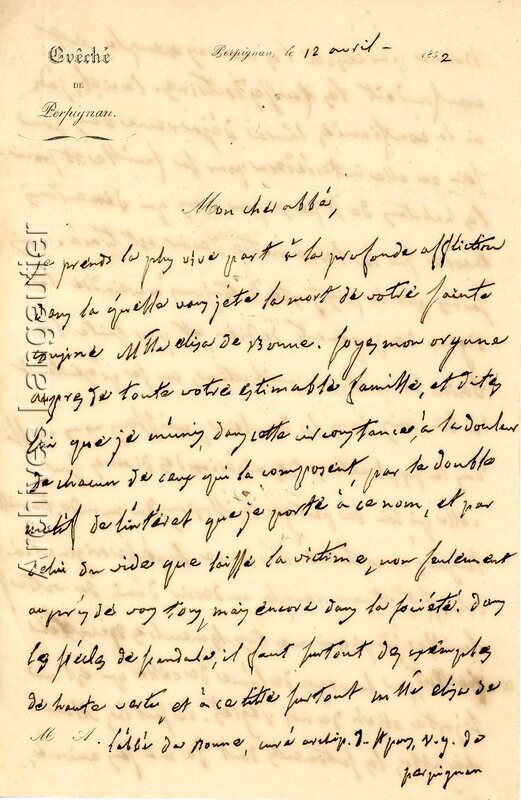 Evêché
DE
Perpignan.
Perpignan, le 12 avril - 1852
Mon cher abbé,
Je prends la plus vive part à la profonde affliction
dans la quelle vous jéte la mort de votre sainte
cousine Mlle elisa de Bonne. soyez mon organe
auprès de toute votre estimable famille, et dites
lui que je m'unis, dans cette circonstance, à la douleur
de chacun de ceux qui la composent, par le double
motif de l'intéret que je porte à ce nom, et par
celui du vide que laisse la victime, non seulement
auprès de vous tous, mais encore dans la société. Dans
les siécles de scandale, il faut surtout des exemples
de haute vertu, et à ce titre surtout mlle elisa de
M A. l'abbé de Bonne, curé archip. de v. g. de
perpignan
Archives Langautier